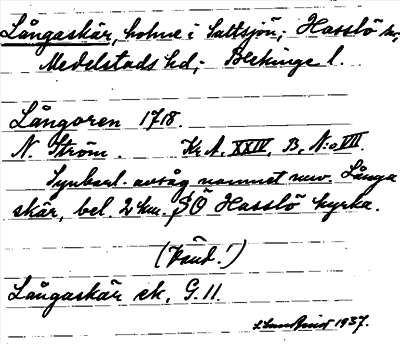 Långaskär, holme i Saltsjön; Hasslö sn,
Medelstads hd; Blekinge l.
Långören 1718.
N. Ström. Kr A, XXIV, B, N:o VII.
Synbarl. avsåg namnet nuv. Långa
skär, bel. 2 km. SÖ Hasslö kyrka.
(Känd!)
Långaskär ek. G. 11.
1937.